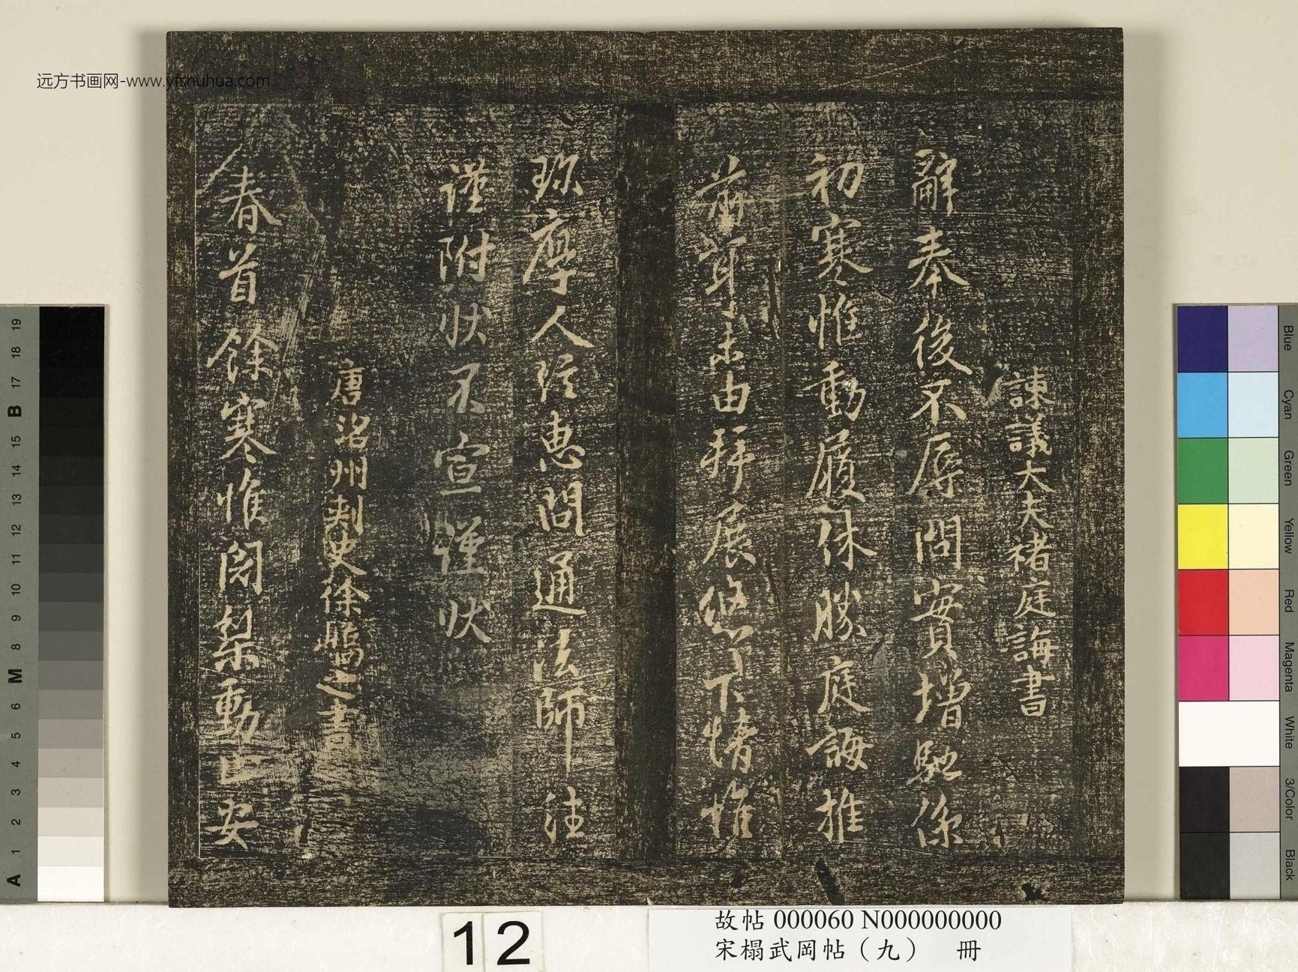 諫議大夫褚庭誨書
辭奉後不辱問安實增馳係
初寒惟動履休勝庭誨推
薦耳未由拜展悠々下情惟
珎摩人往惠問通法師注
謹附狀不宣謹狀
唐洺州刺史徐嶠之書
春首餘寒惟闍梨動止安
远方书画网-www.yfshuhua.com
12
故帖 000060 N000000000
宋榻武岡帖（九） 冊
19
18
17
B
15
14
13
12
11
10
9
8
M
6
5
4
3
2
1
A
Blue
Cyan
Green
Yellow
Red
Magenta
White
3/Color
Black